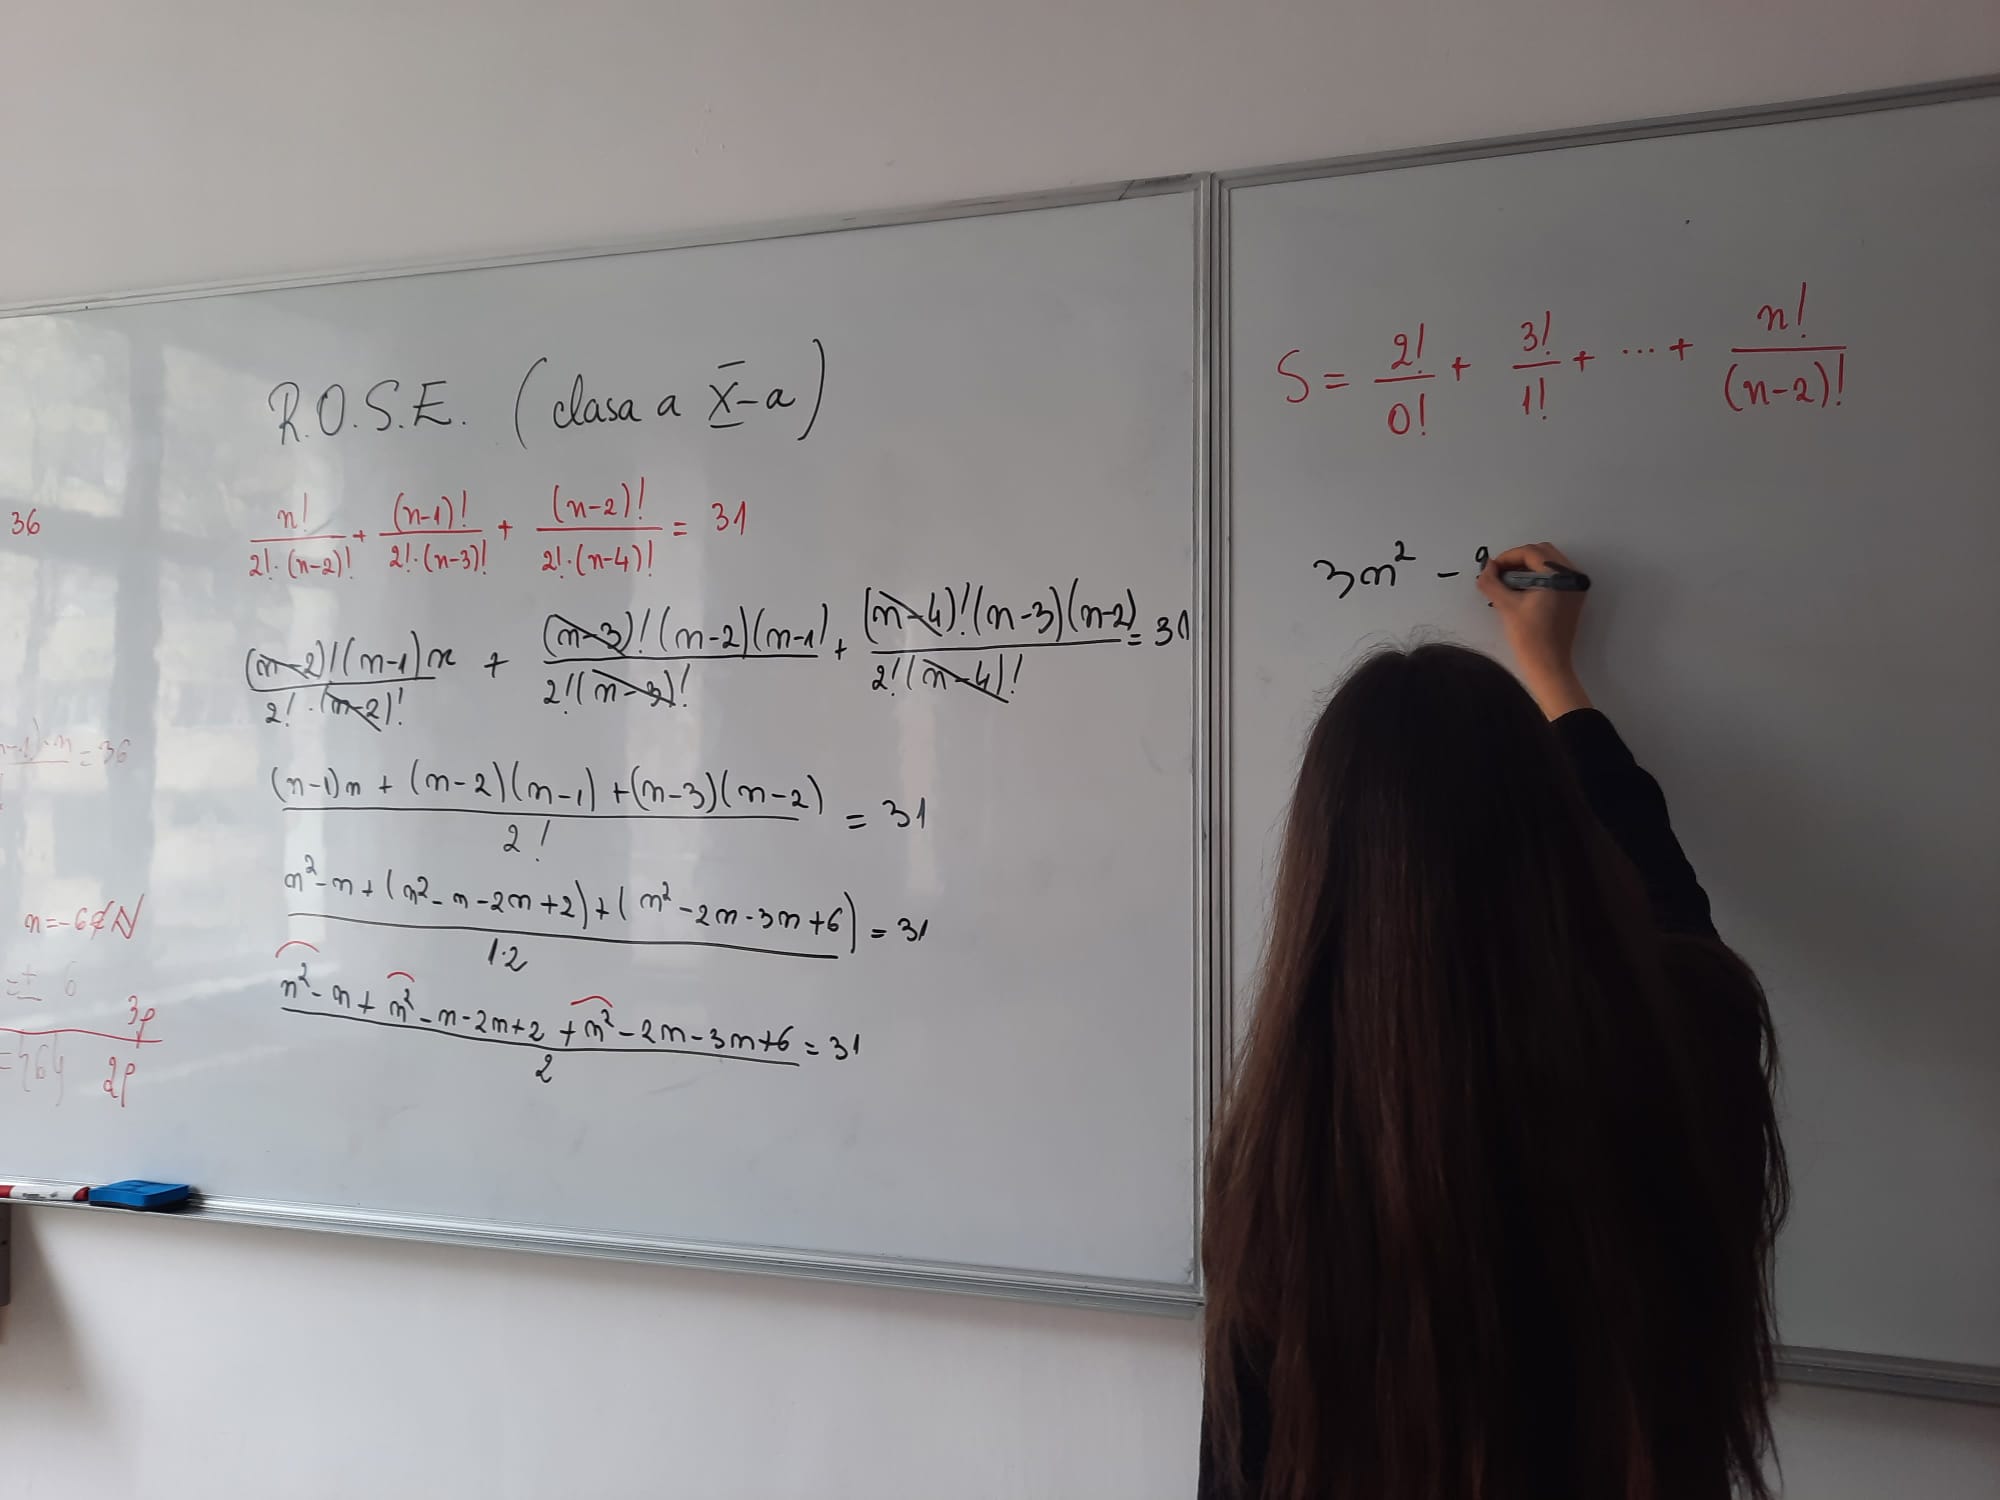 R.O.S.E. (clasa a X-a)
36
n!/(2!·(n-2)!) + (n-1)!/(2!·(n-3)!) + (n-2)!/(2!·(n-4)!) = 31
(n-2)!(n-1)n/(2!·(n-2)!) + (n-3)!(n-2)(n-1)/(2!(n-3)!) + (n-4)!(n-3)(n-2)/(2!(n-4)!) = 31
n = 36
((n-1)n + (n-2)(n-1) + (n-3)(n-2))/2! = 31
(n²-n + (n²-n-2n+2) + (n²-2n-3n+6))/(1·2) = 31
n=-6∉N
(n²-n+n²-n-2n+2+n²-2n-3n+6)/2 = 31
=± 6
3p
2p
S = 2!/0! + 3!/1! + ... + n!/(n-2)!
3n² -